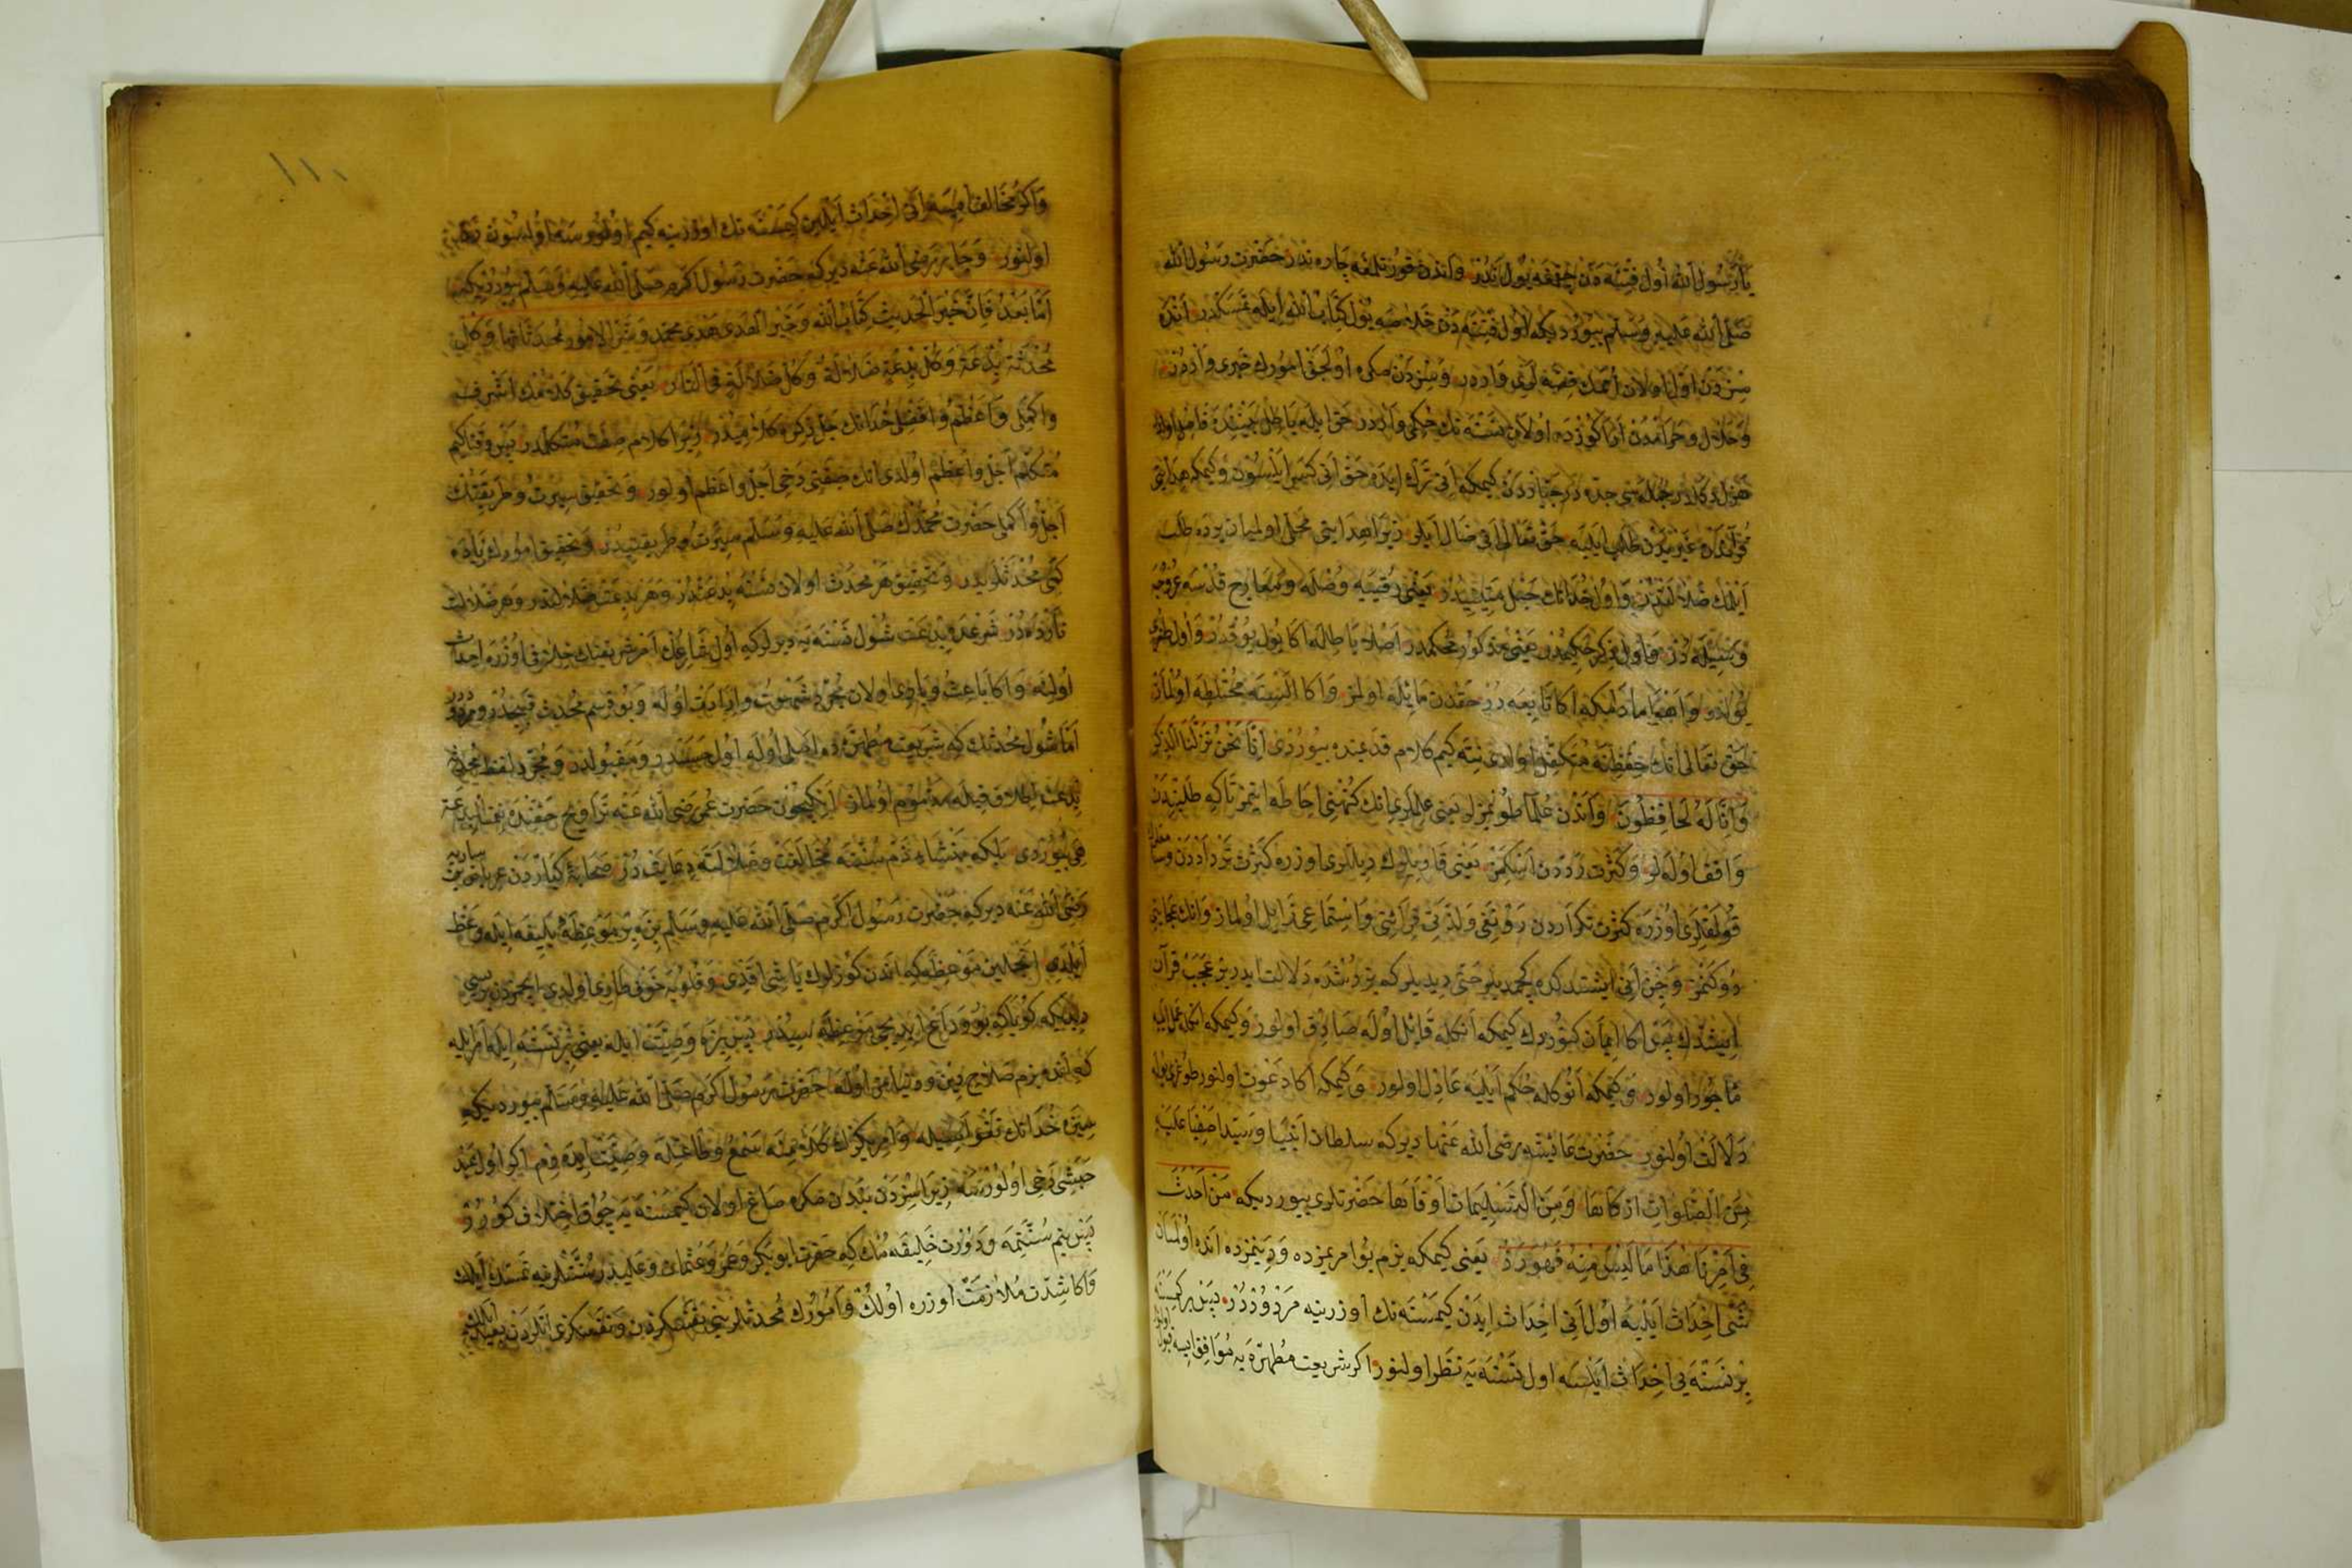 يا رسول الله اول فتنه دن چقمغه يول ندر واندن قورتلمغه چاره ندر حضرت رسول الله
صلى الله عليه وسلم بيورديكه اول فتنه دن خلاصه يول كتاب الله ايله تمسكدر انده
سزدن اول اولان امتك قصه لرى واردر وسزدن صكره اولجق امورك خبرى واردر
وحلال وحرامدن اراكوزده اولان نسنه نك حكمى واردر حق ايله باطل بيننده فاصل اولان
هزل دكلدر جمله سى جده در جبارون كيمكه انى ترك ايده حق انى كسر ايلسون وكيمكه هدايتى
قرآنك غيريدن طلب ايليه حق تعالى انى ضال ايلر زيرا هدايتى محلى اولميان يرده طلب
ايلمك ضلالتدن واول خدانك حبل متينيدر يعنى قربنه وصله ومعارج قدسه عروجه
وسيله در واول ذكر حكيمدر يعنى مذكور محكمدر اصلا باطله اكا يول يوقدر واول طوغرى
يولدر واهوا مادامكه اكا تابعه در حقدن مايله اولمز واكا السنه مختلطه اولماز
حق تعالى انك حفظنه متكفل اولدى نته كيم كلام قديمنده بيوردى انا نحن نزلنا الذكر
وانا له لحافظون واندن علما طويمزلر يعنى علملرى انك كنهنى احاطه ايتمز تاكه طلبندن
واقف اوله لر وكثرت رددن اسكيمز يعنى قاريلرك ديللرى اوزره كثرت تردادندن وسامعلرك
قولقلرى اوزره كثرت تكراردن رونقى ولذت قرائتى واستماعى زايل اولماز وانك عجايبى
دوكنمز وجن انى ايشتدكده كجمديلر حتى ديديلركه بز رشده دلالت ايدر بر عجب قرآن
ايشتدك پس اكا ايمان كتوردك كيمكه انكله قائل اوله صادق اولور وكيمكه انكله عمل ايليه
مأجور اولور وكيمكه انوكله حكم ايليه عادل اولور وكيمكه اكا دعوت اولنور طوغرى يوله
دلالت اولنور حضرت عائشه رضى الله عنها ديركه سلطان انبيا وسيد اصفيا عليه
من الصلوات ازكاها ومن التسليمات اوفاها حضرتلرى بيورديكه من احدث
فى امرنا هذا ما ليس منه فهو رد يعنى كيمكه بزم بو امريمزده ودينمزده انده اولميان
شئ احداث ايليه اول انى احداث ايدن كيمسنه نك اوزرينه مردوددر پس بر كيمسنه
بر نسنه يى احداث ايلسه اول نسنه يه نظر اولنور اكر شريعت مطهره يه موافق ايسه قبول اولنور
واكر مخالف ايسه انى احداث ايلين كيمسنه نك اوزرينه كيم اولورسه اولسون
اولنور وجابر رضى الله عنه ديركه حضرت رسول اكرم صلى الله عليه وسلم بيورديكه
اما بعد فان خير الحديث كتاب الله وخير الهدى هدى محمد وشر الامور محدثاتها وكل
محدثة بدعة وكل بدعة ضلالة وكل ضلالة فى النار يعنى تحقيق كلامك اشرف
واكملى واعظم وافضلى خدانك جل ذكره كلاميدر زيرا كلام صفت متكلمدر پس وقتاكيم
متكلم اجل واعظم اولدى انك صفتى دخى اجل واعظم اولور وتحقيق سيرت وطريقتك
اجل واكملى حضرت محمدك صلى الله عليه وسلم سيرت وطريقتيدر وتحقيق امورك زياده
كمى محدثلريدر وتحقيق هر محدث اولان نسنه بدعتدر وهر بدعت ضلالتدر وهر ضلالت
نارده در شرعده بدعت شول نسنه يه ديرلركه اول شارعك امر شريفنك خلافى اوزره احداث
اولنه واكا باعث وبادى اولان مجرد شهوت وارادت اوله وبو قسم محدث قبيحدر ومردوددر
اما شول محدثك كه شريعت مطهره ده اصلى اوله اول حسندر ومقبولدر ومجرد لفظ محدث
بدعت اطلاق قيله مذموم اولماز انكيچون حضرت عمر رضى الله عنه تراويح حقنده نعمت البدعة
هى بيوردى بلكه منشاء ذم سنته مخالفت وضلالته دعايتدر صحابه كباردن عرباض بن ساريه
رضى الله عنه ديركه حضرت رسول اكرم صلى الله عليه وسلم بزه بر موعظه بليغه ايله وعظ
ايلدى انجلين موعظه كه اندن كوزلرك ياشى اقدى وقلوبه خوف طارى اولدى ايچمزدن بريسى
ديديكه كويا كه بو وداع ايديجى موعظه سيدر پس بزه وصيت ايله يعنى بر نسنه ايله امر ايله
كه انده بزم صلاح دين ودنيامز اوله حضرت رسول اكرم صلى الله عليه وسلم بيورديكه
سزه خدانك تقواسيله واميريكزك كلامنه سمع وطاعتله وصيت ايدرم اكر اول عبد
حبشى دخى اولورسه زيرا سزدن بندن صكره صاغ اولان كيمسنه يه چوق اختلاف كورر
پس بنم سنتمه ودورت خليفه مك كه حضرت ابو بكر وعمر وعثمان وعليدر سنتلرينه تمسك ايلك
واكا شدت ملازمت اوزره اولك وامورك محدثلرينى نفسكزدن ونفسكزى انلردن بعيد ايلك